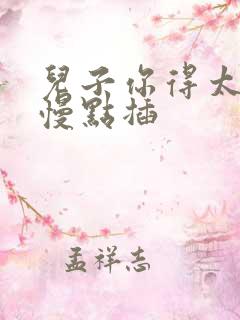 兒子你得太
慢點插
孟祥志